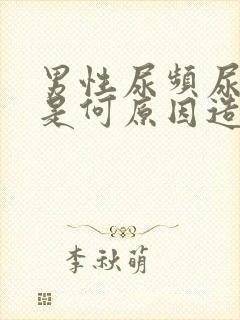 男性尿频尿
是何原因造
李秋萌